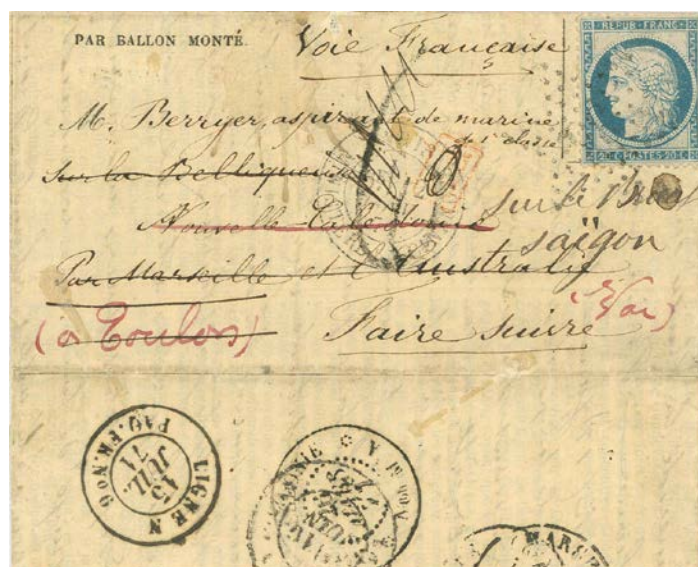 PAR BALLON MONTÉ.
Voie Française
REPUB. FRANC.
20 C. POSTES 20 C.
M. Berryer, aspirant de marine
de 1re classe
Sur la Belliqueuse
Nouvelle Calédonie
sur le
saïgon
Par Marseille et l'Australie
(à Toulon)
(Var)
Faire suivre
LIGNE N
PAQ. FR. No 9
15
JUIL.
71